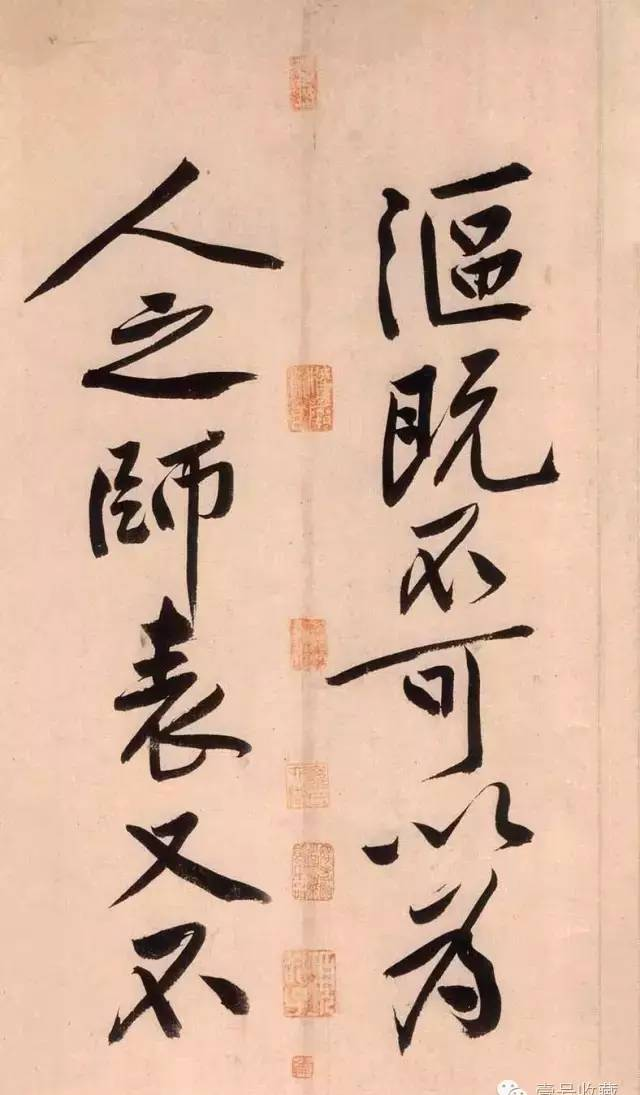 漚既不可以為
人之師表又不
壹号收藏